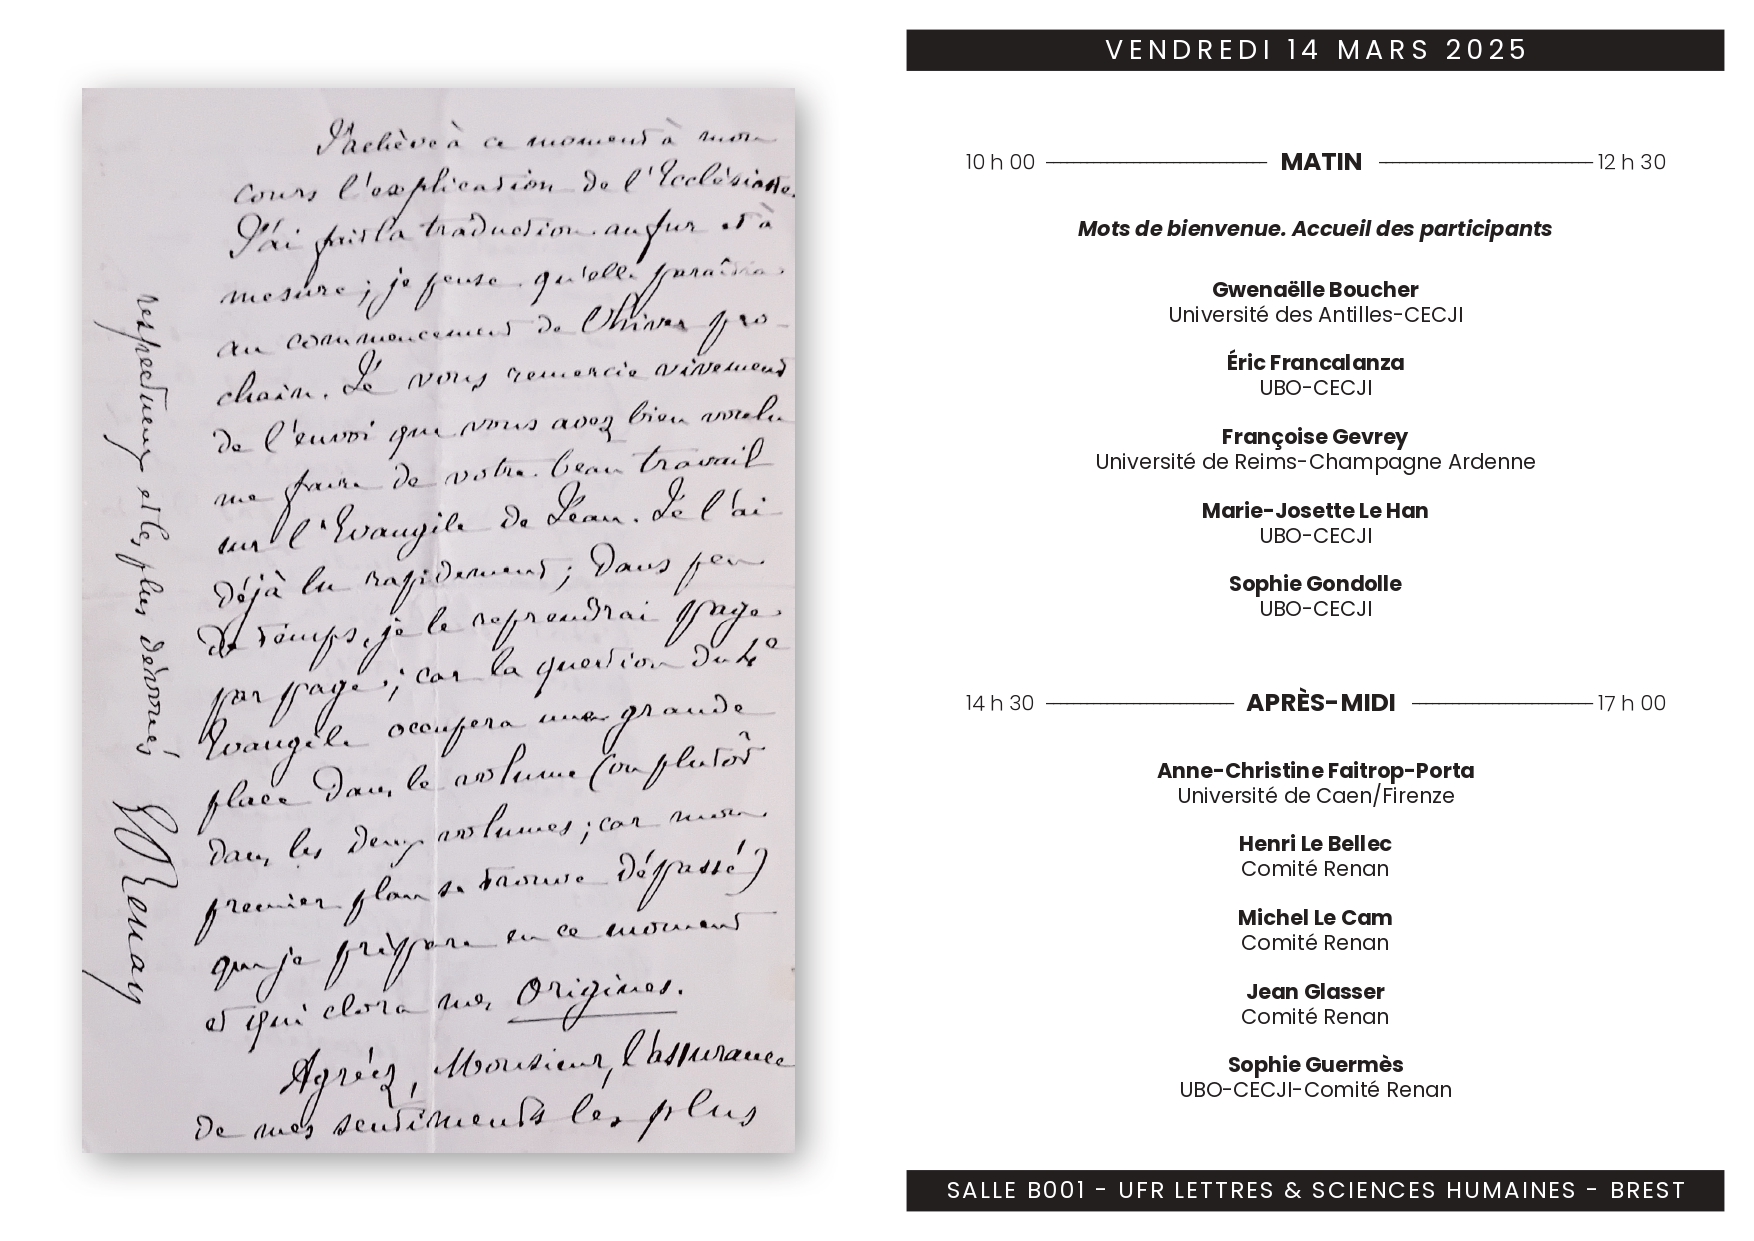 J'achève à ce moment à mon
cours l'explication de l'Ecclésiaste.
J'ai fait la traduction au fur et à
mesure ; je pense qu'elle paraîtra
au commencement de l'hiver pro-
chain. Je vous remercie vivement
de l'envoi que vous avez bien voulu
me faire de votre beau travail
sur l'Evangile de Jean. Je l'ai
déjà lu rapidement ; dans peu
de temps, je le reprendrai page
par page ; car la question du 4e
Evangile occupera une grande
place dans le volume (ou plutôt
dans les deux volumes ; car mon
premier plan se trouve dépassé)
que je prépare en ce moment
et qui clora mes Origines.
Agréez, Monsieur, l'assurance
de mes sentiments les plus
respectueux et les plus dévoués
E Renan
VENDREDI 14 MARS 2025
10 h 00 MATIN 12 h 30
Mots de bienvenue. Accueil des participants
Gwenaëlle Boucher
Université des Antilles-CECJI
Éric Francalanza
UBO-CECJI
Françoise Gevrey
Université de Reims-Champagne Ardenne
Marie-Josette Le Han
UBO-CECJI
Sophie Gondolle
UBO-CECJI
14 h 30 APRÈS-MIDI 17 h 00
Anne-Christine Faitrop-Porta
Université de Caen/Firenze
Henri Le Bellec
Comité Renan
Michel Le Cam
Comité Renan
Jean Glasser
Comité Renan
Sophie Guermès
UBO-CECJI-Comité Renan
SALLE B001 - UFR LETTRES & SCIENCES HUMAINES - BREST